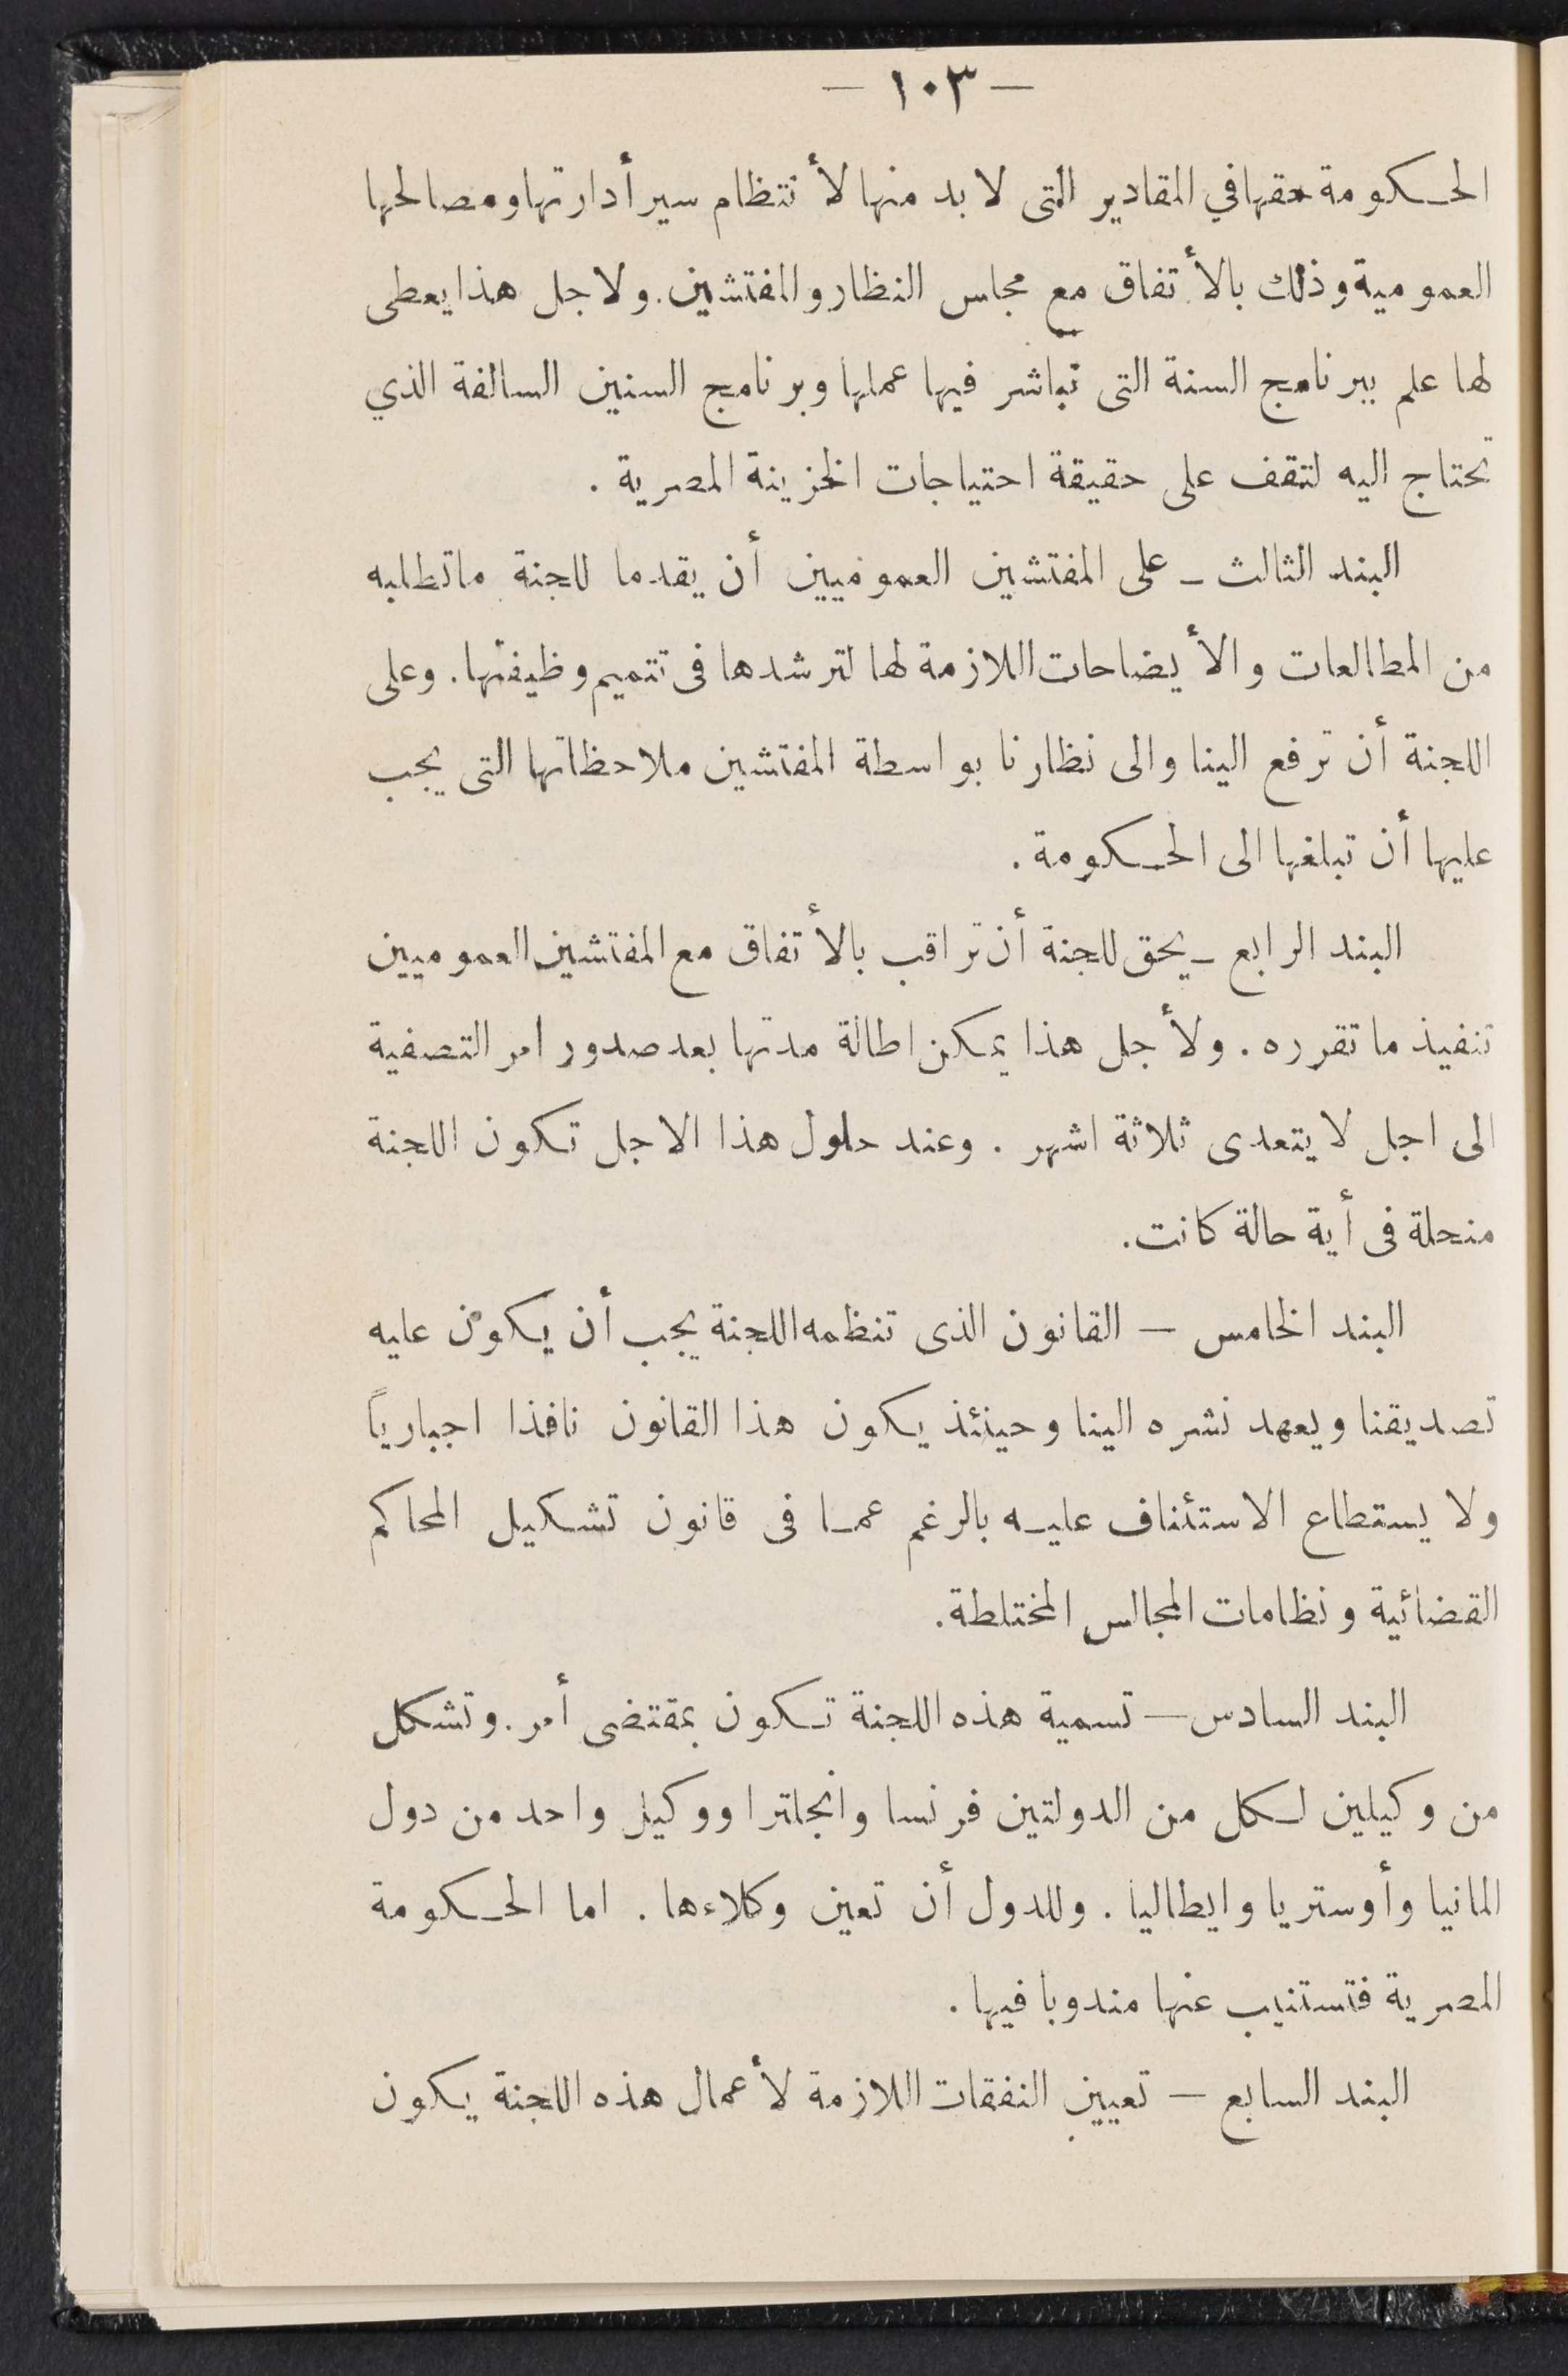 — ١٠٣ —
الحكومة حقها في المقادير التى لا بد منها لأ نتظام سير أدارتها ومصالحها
العمومية وذلك بالأ تفاق مع مجلس النظار والمفتشين. ولا جل هذا يعطى
لها علم ببرنامج السنة التى تباشر فيها عملها وبرنامج السنين السالفة الذي
تحتاج اليه لتقف على حقيقة احتياجات الخزينة المصرية .
البند الثالث – على المفتشين العموميين أن يقدما للجنة ماتطلبه
من المطالعات والأ يضاحات اللازمة لها لترشدها فى تتميم وظيفتها. وعلى
اللجنة أن ترفع الينا والى نظارنا بواسطة المفتشين ملاحظاتها التى يجب
عليها أن تبلغها الى الحكومة .
البند الرابع – يحق للجنة أن تراقب بالأ تفاق مع المفتشين العموميين
تنفيذ ما تقرره . ولأ جل هذا يمكن اطالة مدتها بعد صدور امر التصفية
الى اجل لا يتعدى ثلاثة اشهر . وعند حلول هذا الاجل تكون اللجنة
منحلة فى أية حالة كانت.
البند الخامس — القانون الذى تنظمه اللجنة يجب أن يكون عليه
تصديقنا ويعهد نشره الينا وحينئذ يكون هذا القانون نافذا اجبارياً
ولا يستطاع الاستئناف عليه بالرغم عما فى قانون تشكيل المحاكم
القضائية ونظامات المجالس المختلطة.
البند السادس — تسمية هذه اللجنة تكون بمقتضى أمر. وتشكل
من وكيلين لكل من الدولتين فرنسا وانجلترا ووكيل واحد من دول
المانيا وأوستريا وايطاليا . وللدول أن تعين وكلاءها . اما الحكومة
المصرية فتستنيب عنها مندوبا فيها .
البند السابع — تعيين النفقات اللازمة لأ عمال هذه اللجنة يكون